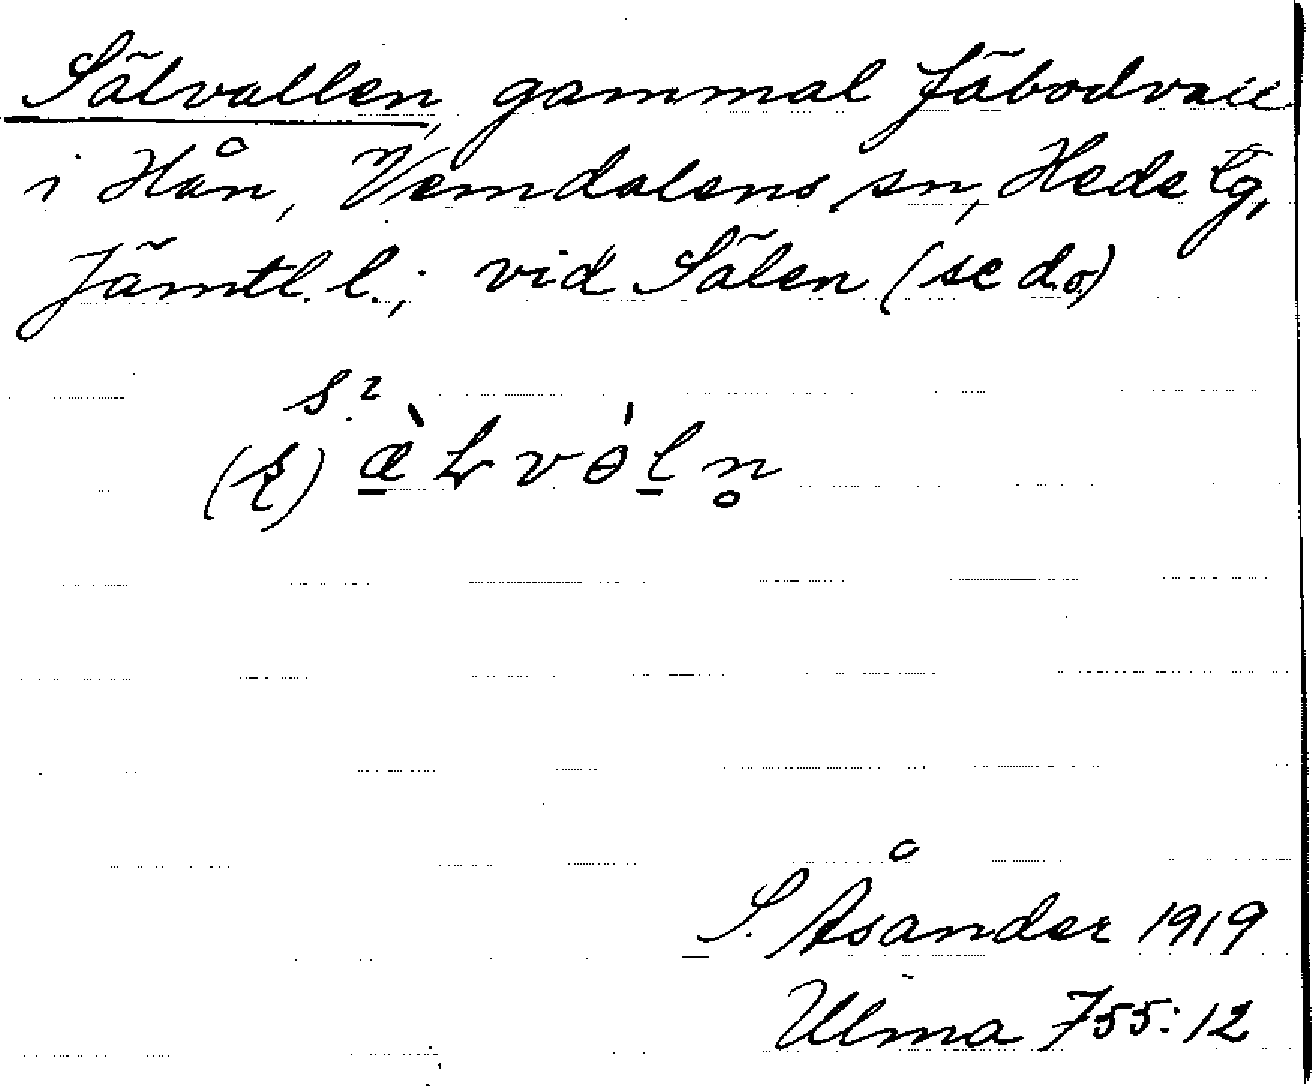 Sälvallen, gammal fäbodvall
i Hån, Vemdalens sn, Hede tg,
Jämtl. l.; vid Sälen (se d.o.)
s.?
æ̀ L v ó l n̥
S. Åsander 1919
Ulma 755:12